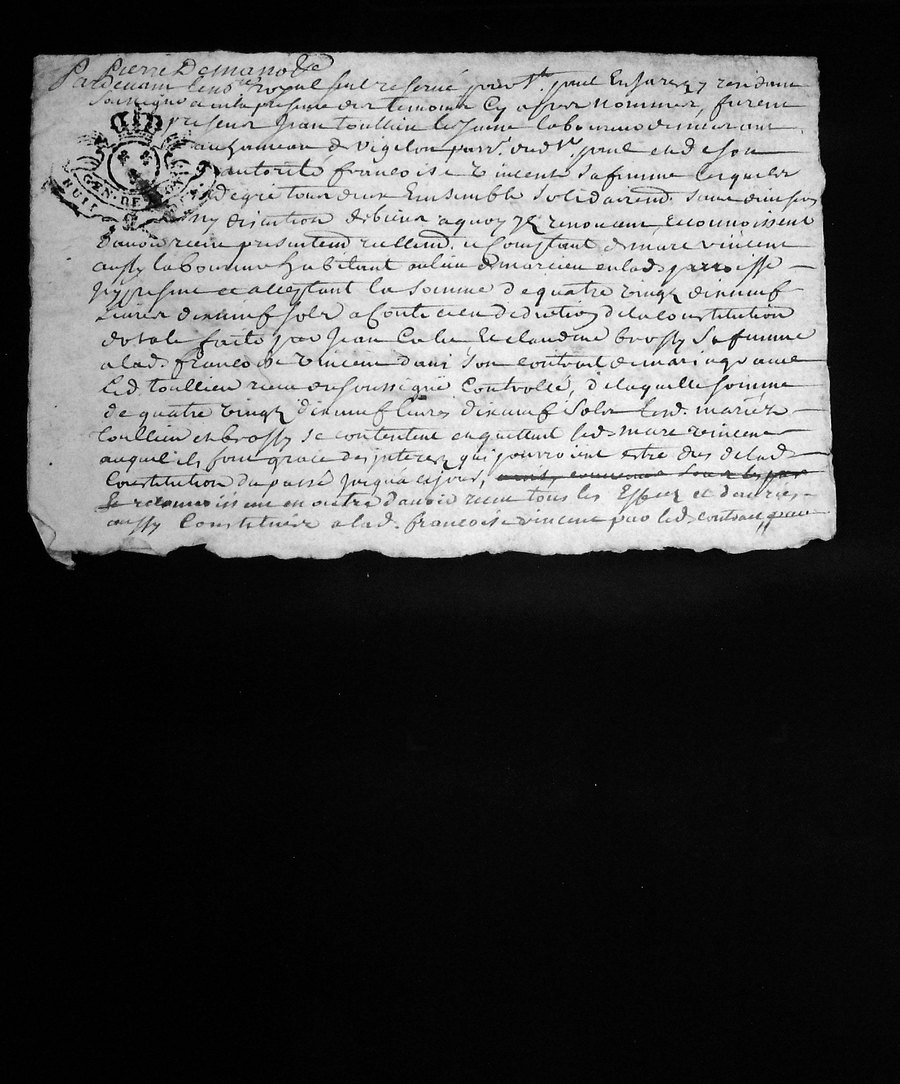 Pierre Demano
Pardevant le no.re Royal seul reservé pour St. paul En Jarez y residant
soussigné a en la presence des temoins Cy apres nommez, furent
presens Jean toullieu le Jeune laboureur demeurant
au hameau de vigelon parr. dud. St. paul et de son
autorité françoise vincent sa femme lesquels
Degré tous deux Ensemble solidairemt. sans division
ny discution de biens a quoy Ilz renoncent Reconnoissent
d'avoir receu presentemt. reellemt. et Comptant de marc vincent
aussy laboureur habitant au lieu de marcieu en lad. parroisse
Icy present et acceptant la somme de quatre vingt dixneuf
Livres dixneuf sols a Conte et en deduction de la Constitution
dotale faite par Jean et claudine brossy sa femme
a lad. françoise vincent dans son contrat de mariage avec
led. toullieu receu du soussigné Controllé, de laquelle somme
de quatre vingt dixneuf livres dixneuf sols lesd. mariez
toullieu et brossy se contentent en quittent led. marc vincent
auquel ils font grace des interez qui pourroient estre dus de lad.
Constitution du passé jusqu'a ce jour,
Se reconnoissent en outre d'avoir receu tous les Effetz et denrées
aussy Constituez a lad. francoise vincent par led. contract
GEN. DE LYON
HUIT